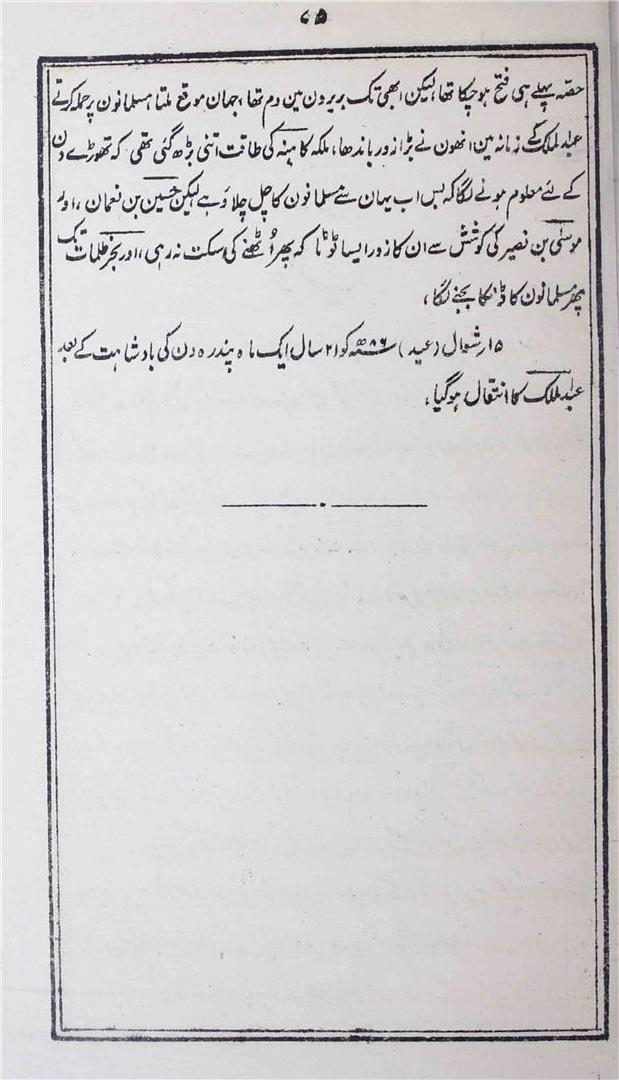 ۸۵
حصّہ پہلے ہی فتح ہوچکا تھا لیکن ابھی تک بربرون مین دم تھا، جہان موقع ملتا مسلمانون پر حملہ کرتے
عبدالملک کے زمانہ مین انھون نے بڑا زور باندھا، ملکہ کاہنہ کی طاقت اتنی بڑھ گئی تھی کہ تھوڑے دن
کے لئے معلوم ہونے لگا کہ بس اب یہان سے مسلمانون کا چل چلاؤ ہے لیکن حسین بن نعمان، اور
موسیٰ بن نصیر کی کوشش سے ان کا زور ایسا ٹوٹا کہ پھر اُٹھنے کی سکت نہ رہی، اور بحر ظلمات تک
پھر مسلمانون کا ڈنکا بجنے لگا،
۱۵ر شوال (عید) ۸۶ھ کو ۲۱ سال ایک ماہ پندرہ دن کی بادشاہت کے بعد
عبدالملک کا انتقال ہوگیا،